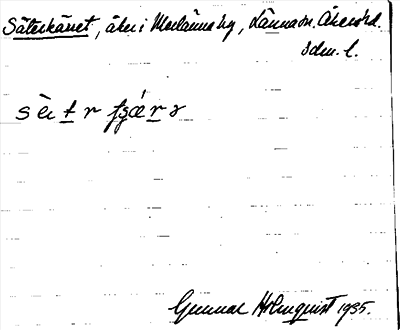 Säterkärret, åker i Merlänna by, Länna sn. Åkers hd.
Sdm. l.
sὲtr fʒǽrr
Gunnar Holmquist 1935.